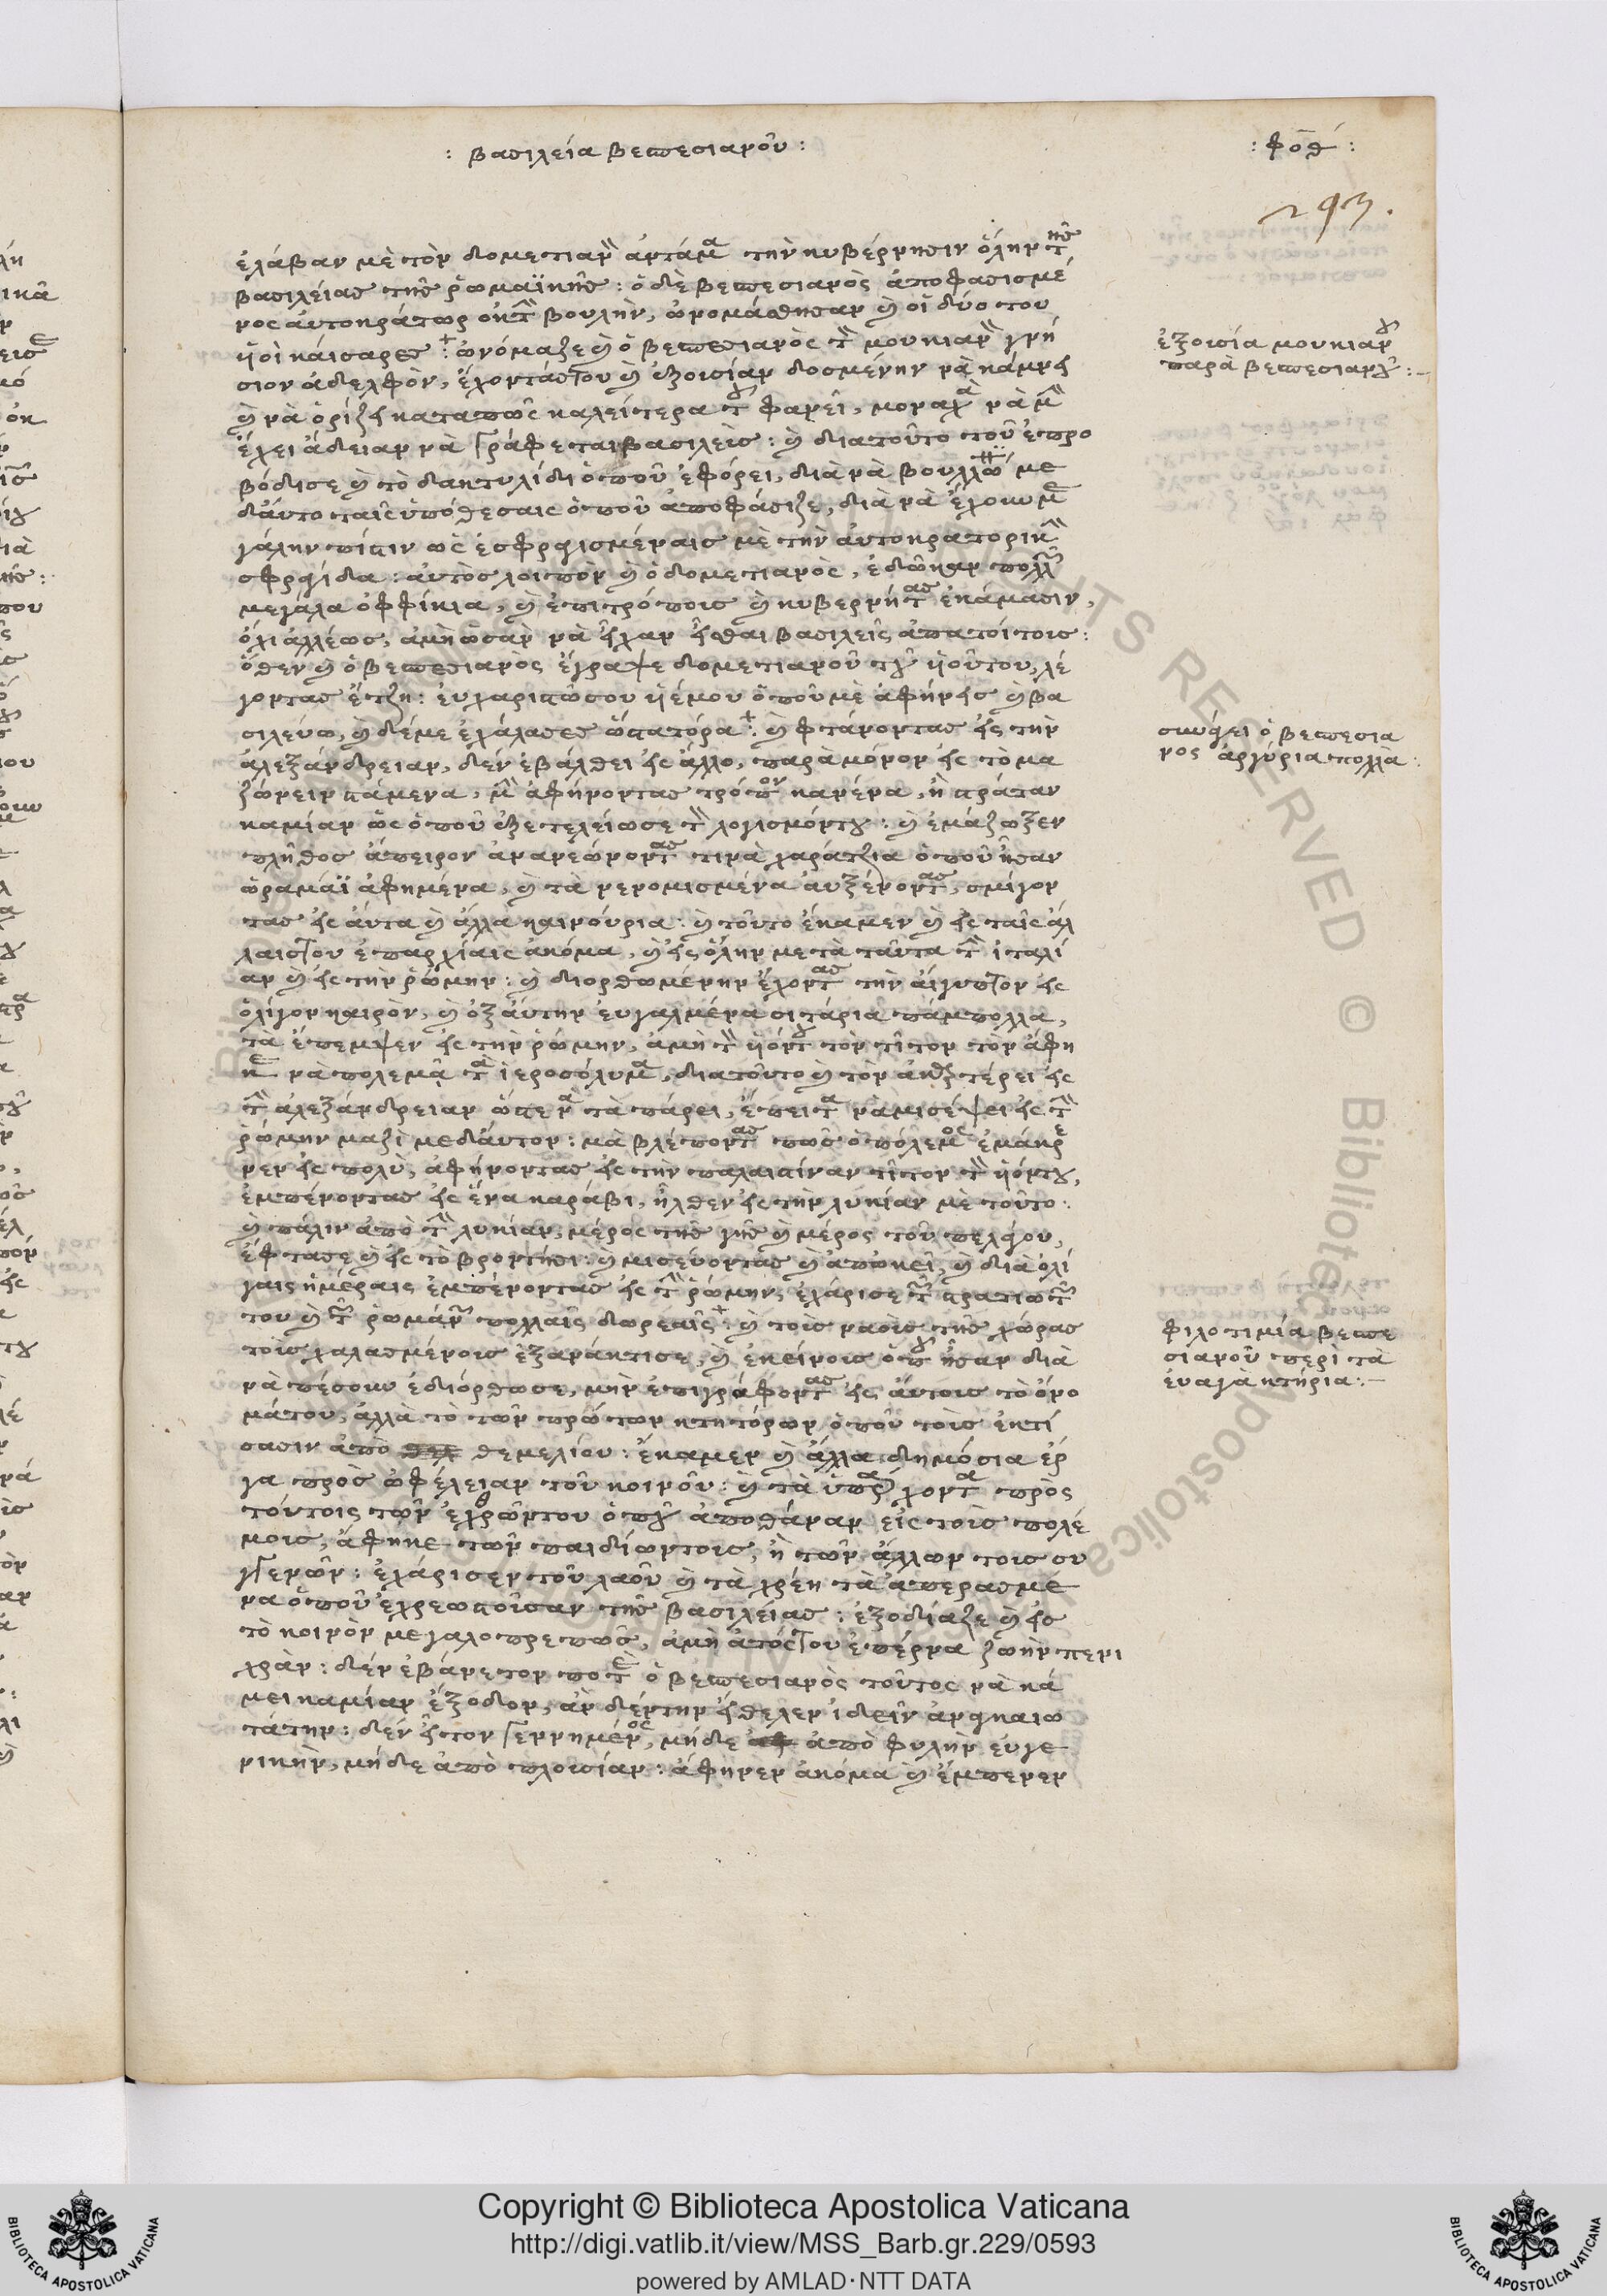 : βασιλεία βεσπεσιανοῦ :
: φοθ :
293.
ἐλάβαν μὲ τὸν δομετιανὸν ἀντάμα τὴν κυβέρνησιν ὅλην τῆς
βασιλείας τῆς ῥωμαϊκῆς : ὁ δὲ βεσπεσιανὸς ἀποφασισμέ
νος ἀυτοκράτωρ ἐκ τὴν βουλὴν, ὠνομάσθησαν καὶ οἱ δύο του
ὑϊοὶ κάισαρες : ὠνόμαζε καὶ ὁ βεσπεσιανὸς τὸν μουκιανὸν γνή
σιον ἀδελφὸν, ἔχοντάς του καὶ ἐξουσίαν δοσμένην νὰ κάμνει
καὶ νὰ ὁρίζει καταπῶς καλείτερα τοῦ φανεῖ, μοναχὰ νὰ μὴν
ἔχει ἄδειαν νὰ γράφεται βασιλεὺς : καὶ διατοῦτο τοῦ ἐπρο
βόδισε καὶ τὸ δακτυλίδι ὁποῦ ἐφόρει, διὰ νὰ βουλλώ με
δἀυτο ταῖς ὑπόθεσαις ὁποῦ ἀποφάσιζε, διὰ νὰ ἔχουν με
γάλην πίστιν ὡς ἐσφραγισμέναις μὲ τὴν ἀυτοκρατορικὴν
σφραγίδα : ἀυτὸς λοιπὸν καὶ ὁ δομετιανὸς, ἐδῶκαν πολλοῖς
μεγάλα ὀφφίκια, καὶ ἐπιτρόπους καὶ κυβερνήτας ἐκάμασιν,
ὄχι ἀλλέως, ἀμὴ ὡσὰν νὰ εἶχαν εἶσθαι βασιλεῖς ἀπατοίτοις :
ὅθεν καὶ ὁ βεσπεσιανὸς ἔγραψε δομετιανοῦ τοῦ ὑϊοῦτου, λέ
γοντας ἔτζη : ἐυχαριστῶσου ὑϊέμου ὁποῦ μὲ ἀφήνεις καὶ βα
σιλεύω, καὶ δέμε ἐχάλασες ὥστατόρα : καὶ φτάνοντας εἰς τὴν
ἀλεξάνδρειαν, δὲν ἐβάλθει εἰς ἄλλο, παρὰ μόνον εἰς τὸ μα
ζώνειν στάμενα, μὴν ἀφήνοντας τρόπον κανένα, ἢ στράταν
καμίαν ὥς ὁποῦ ἐξετελείωσε τὸν λογισμόντου : καὶ ἐμάζωξεν
πλῆθος ἄπειρον ἀνανεώνοντας τινὰ χαράτζια ὁποῦ ἦσαν
ὡραμάϊ ἀφημένα, καὶ τὰ νενομισμένα ἀυξένοντας, σμίγον
τας εἰς ἀυτα καὶ ἄλλα καινούρια : καὶ τοῦτο ἔκαμεν καὶ εἰς ταῖς ἀλ
λαις του ἐπαρχίαις ἀκόμα, καὶ εἰς ὅλην μετὰ ταῦτα τὴν ἰταλί
αν καὶ εἰς τὴν ῥώμην : καὶ διορθωμένην ἔχοντας τὴν ἀίγυπτον εἰς
ὀλίγον καιρὸν, καὶ ὀξ ἀυτὴν ἐυγαλμένα σιτάρια πάμπολλα,
τὰ ἔπεμψεν εἰς τὴν ῥώμην, ἀμὴ τὸν ὑϊόντου τὸν τίτον τὸν ἀφῆ
κε νὰ πολεμᾷ τὰ ἱεροσόλυμα, διατοῦτο καὶ τὸν ἀκαρτέρει εἰς
τὴν ἀλεξάνδρειαν ὥστε νὰ τὰ πάρει, ἔπειτα νὰ μισέψει εἰς τὴν
ῥώμην μαζὶ μεδἀυτον : μὰ βλέποντας πῶς ὁ πόλεμος ἐμάκρε
νεν εἰς πολὺ, ἀφήνοντας εἰς τὴν παλαιστίναν τίτον τὸν ὑϊόντου,
ἐμπένοντας εἰς ἕνα καράβι, ἦλθεν εἰς τὴν λυκίαν μὲ τοῦτο :
καὶ πάλιν ἀπὸ τὴν λυκίαν, μέρος τῆς γῆς καὶ μέρος τοῦ πελάγου,
ἔφτασε καὶ εἰς τὸ βροντήσι : καὶ μισεύοντας καὶ ἀποκεῖ, καὶ διὰ ὀλί
γαις ἡμέραις ἐμπένοντας εἰς τὴν ῥώμην, ἐχάρισε τοῖς στρατιώταις
του καὶ τοῖς ῥωμάνοις πολλαῖς δωρεαῖς : καὶ τοὺς ναοὺς τῆς χώρας
τοὺς χαλασμένους ἐξανάκτισε, καὶ ἐκείνους ὁποῦ ἦσαν διὰ
νὰ πέσουν ἐδιόρθωσε, μὴν ἐπιγράφοντας εἰς ἀυτους τὸ ὄνο
μάτου, ἀλλὰ τὸ τῶν πρώτων κτητόρων ὁποῦ τοὺς ἐκτί
σασιν ἀπὸ θεμελίου : ἔκαμεν καὶ ἄλλα δημόσια ἔρ
γα πρὸς ὠφέλειαν τοῦ κοινοῦ : καὶ τὰ ὑπάρχοντα πρὸς
τούτοις τῶν ἐχθρῶντου ὁποῦ ἀποθάναν εἰς τοὺς πολέ
μους, ἄφηκε τῶν παιδίωντους, ἢ τῶν ἄλλων τους συ
γγενῶν : ἐχάρισεν τοῦ λαοῦ καὶ τὰ χρέη τὰ ἀπερασμέ
να ὁποῦ ἐχρεωστοῦσαν τῆς βασιλείας : ἐξοδίαζε καὶ εἰς
τὸ κοινὸν μεγαλοπρεπῶς, ἀμὴ ἀτός του ἐπέρνα ζωὴν πτενι
χρὰν : δὲν ἐβάρετον ποτὲ ὁ βεσπεσιανὸς τοῦτος νὰ κά
μει καμίαν ἔξοδον, ἂν δέντην ἤθελεν ἰδεῖν ἀναγκαιω
τάτην : δέν ἦτον γεννημένος, μήδε ἀπὸ φυλὴν ἐυγε
νικὴν, μήδε ἀπὸ πλουσίαν : ἀφῆνεν ἀκόμα καὶ ἔμπενεν
ἐξουσία μουκιανοῦ
παρὰ βεσπεσιανοῦ :-
συνάγει ὁ βεσπεσια
νὸς ἀργύρια πολλὰ :
φιλοτιμία βεσπε
σιανοῦ περὶ τὰ
Copyright © Biblioteca Apostolica Vaticana
http://digi.vatlib.it/view/MSS_Barb.gr.229/0593
powered by AMLAD·NTT DATA
BIBLIOTECA APOSTOLICA VATICANA
BIBLIOTECA APOSTOLICA VATICANA